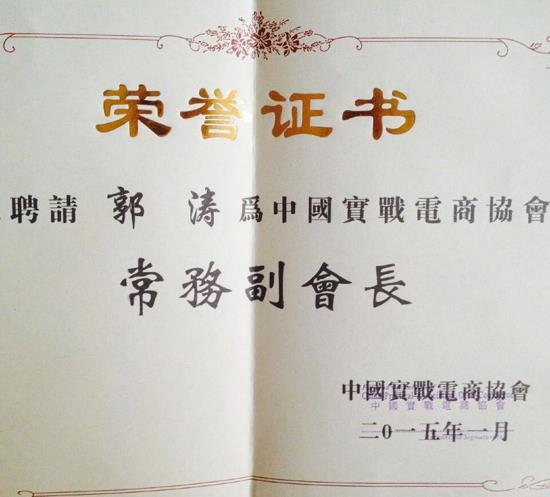 荣誉证书
聘請 郭 涛 爲中國實戰電商協會
常務副會長
中國實戰電商協會
中國實戰電商協會
二〇一五年一月